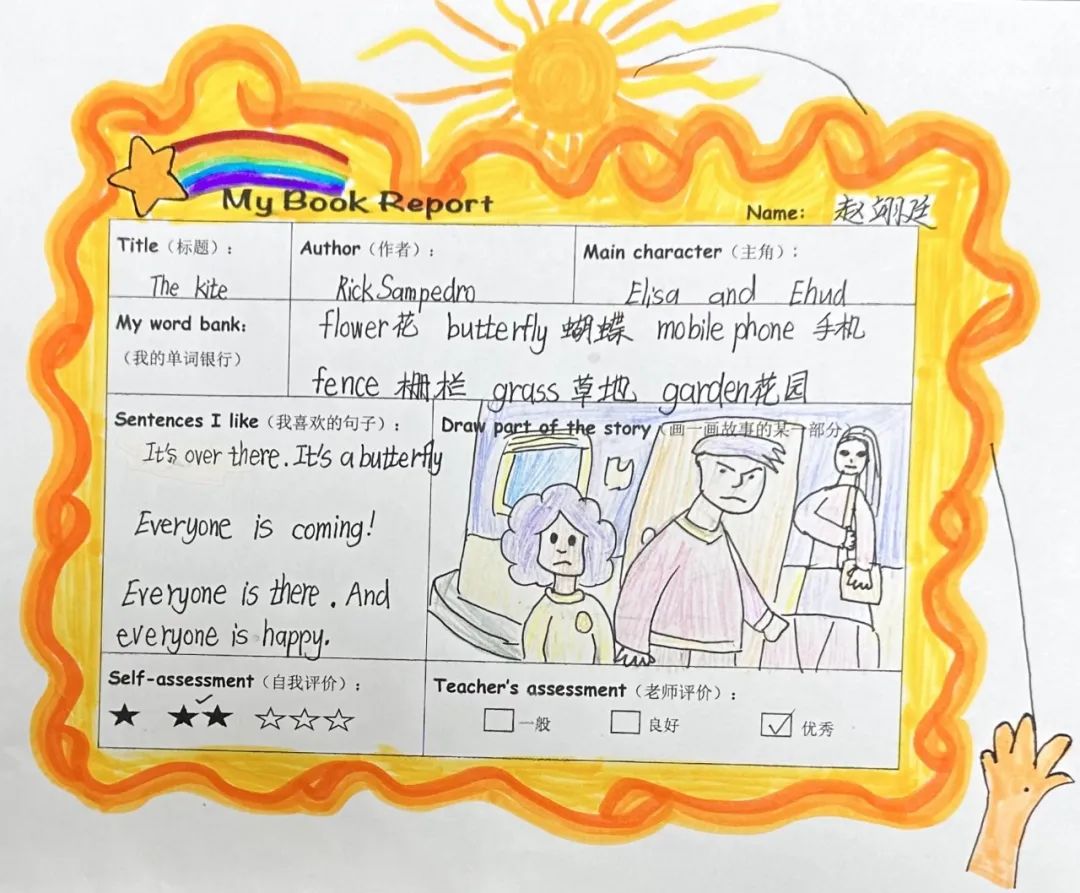 My Book Report
Name: 赵翊廷
Title（标题）:
The kite
Author（作者）:
Rick Sampedro
Main character（主角）:
Elisa and Ehud
My word bank:
（我的单词银行）
flower花 butterfly 蝴蝶 mobile phone 手机
fence 栅栏 grass 草地 garden花园
Sentences I like（我喜欢的句子）:
It's over there. It's a butterfly
Everyone is coming!
Everyone is there. And
everyone is happy.
Draw part of the story（画一画故事的某一部分）
Self-assessment（自我评价）:
Teacher's assessment（老师评价）:
一般 良好 优秀